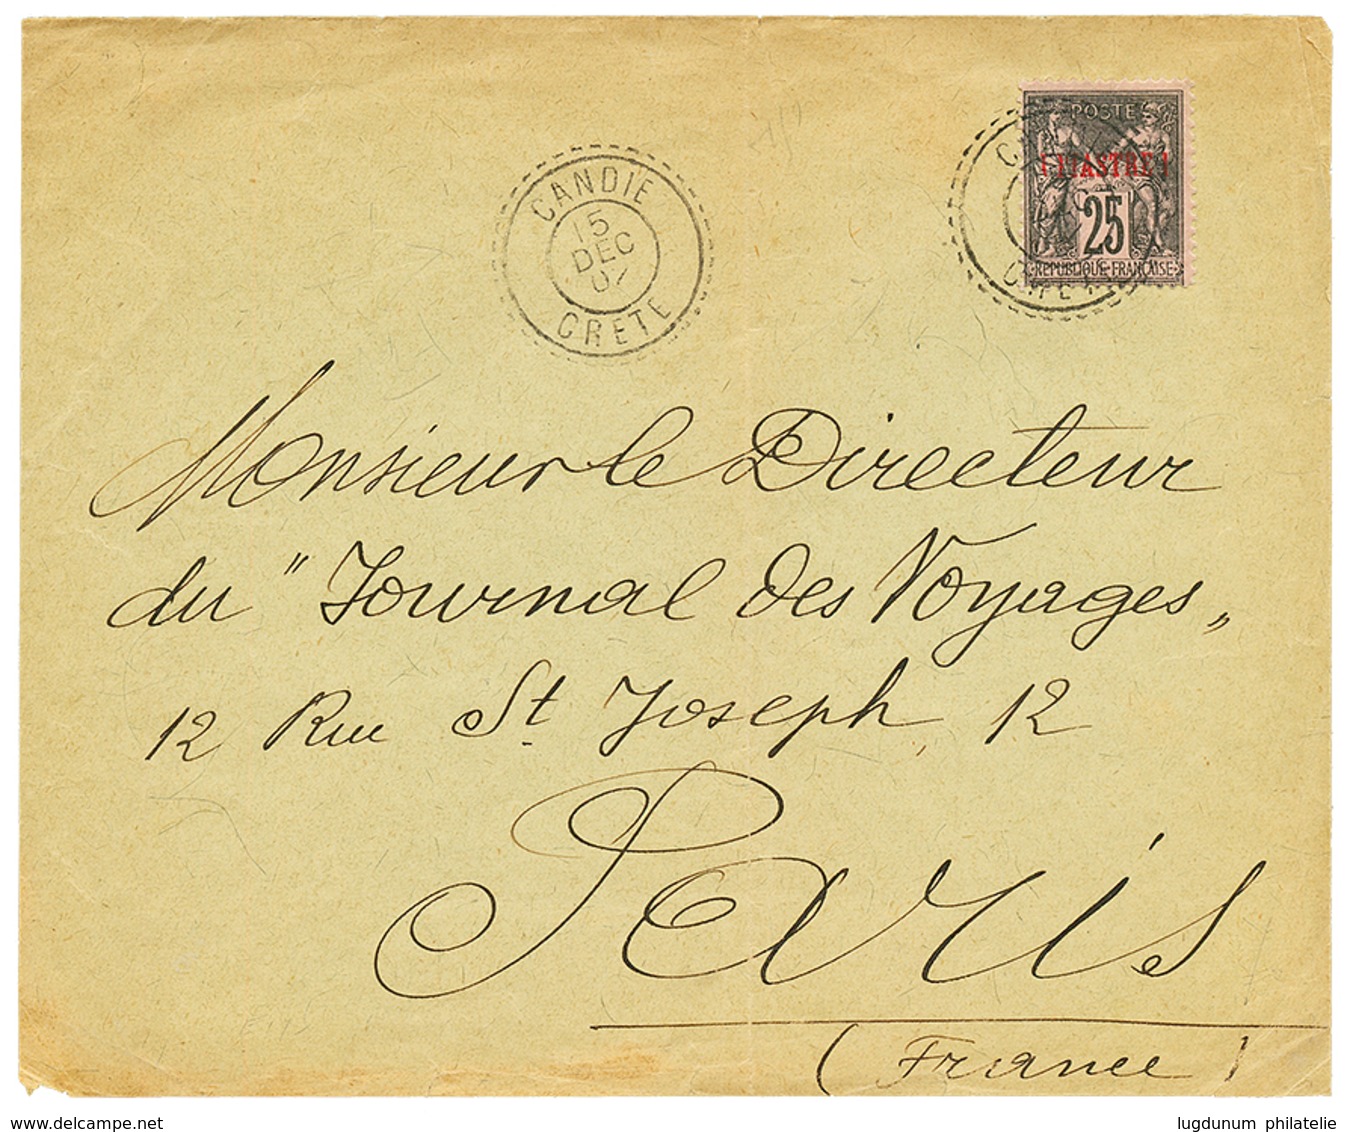 POSTE
1 PIASTRE 1
25
REPUBLIQUE FRANÇAISE
CANDIE
15
DEC
07
CRETE
Monsieur le Directeur
du " Journal des Voyages „
12 Rue St. Joseph 12
Paris
(France)
www.delcampe.net
lugdunum philatelie